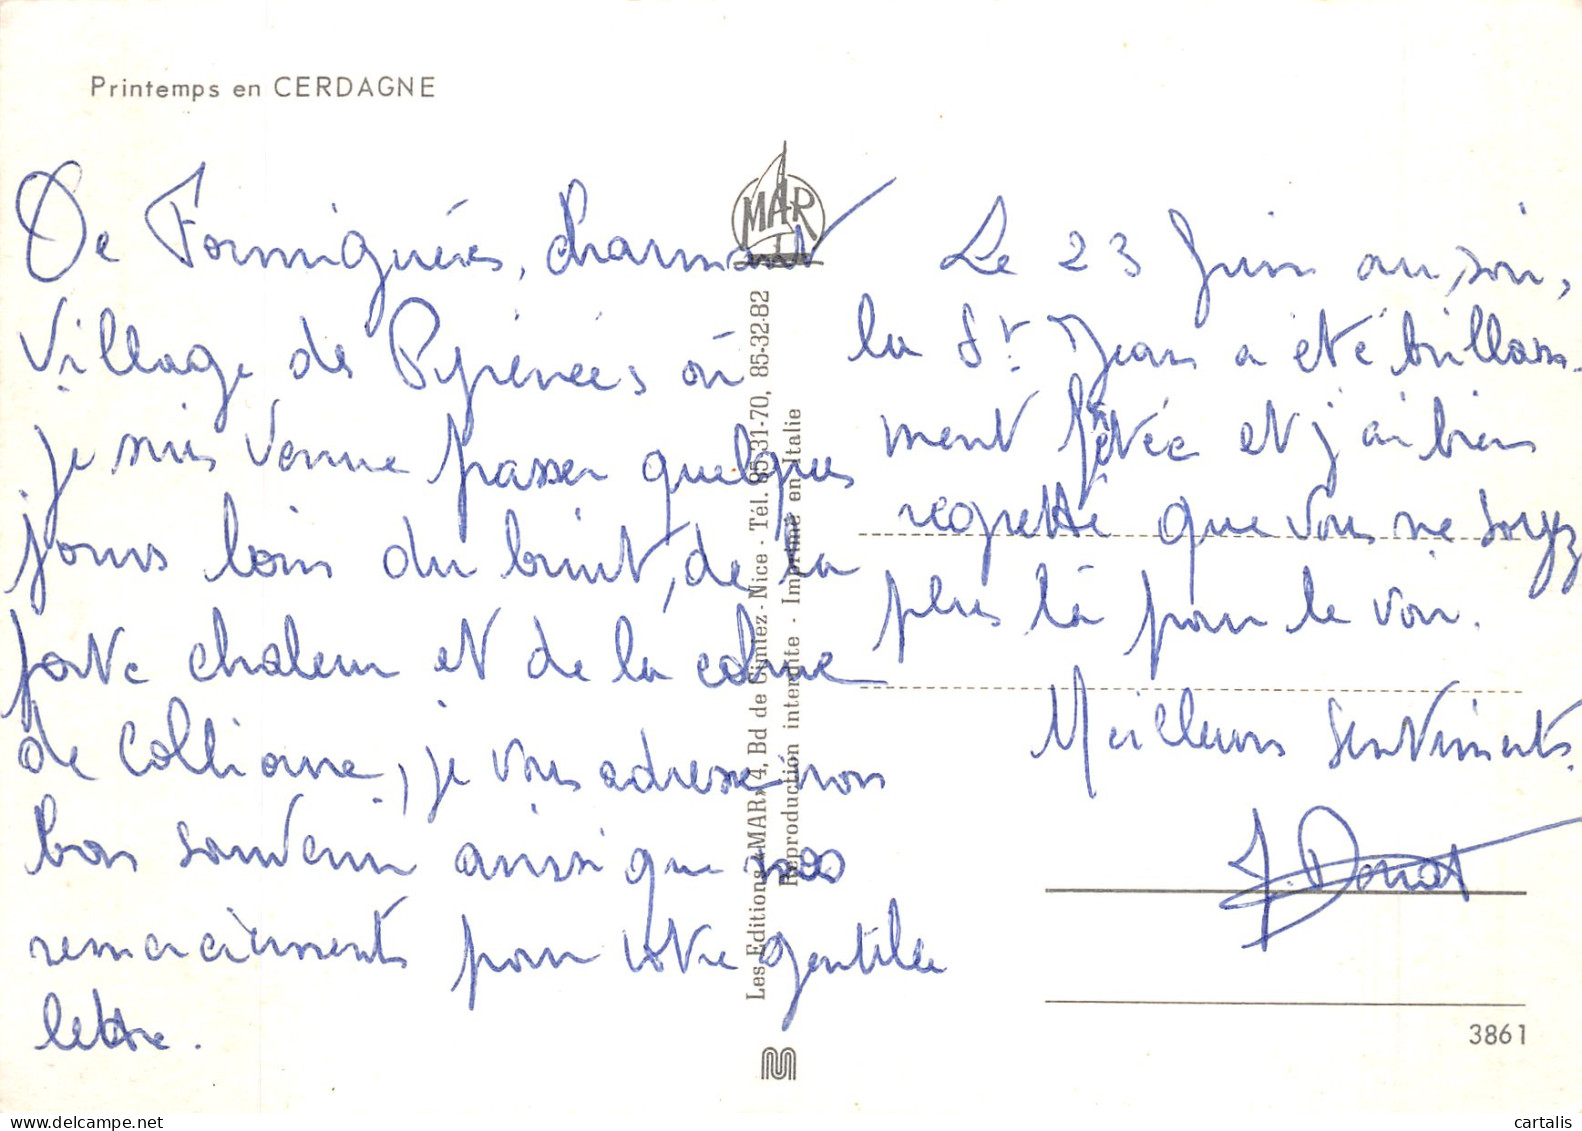 Printemps en CERDAGNE
De Formiguères, charmant
village des Pyrénées où
je suis venue passer quelques
jours loin du bruit, de la
forte chaleur et de la cohue
de Collioure, je vous adresse mon
bon souvenir ainsi que mes
remerciements pour votre gentille
lettre.
MAR
Les Editions «MAR» 4, Bd de Cimiez - Nice - Tél. 85-31-70, 85-32-82
Reproduction interdite - Imprimé en Italie
Le 23 Juin au soir,
la St Jean a été brillam-
ment fêtée et j'ai bien
regretté que vous ne soyez
plus là pour le voir.
Meilleurs sentiments.
J. Donat
3861
cartalis